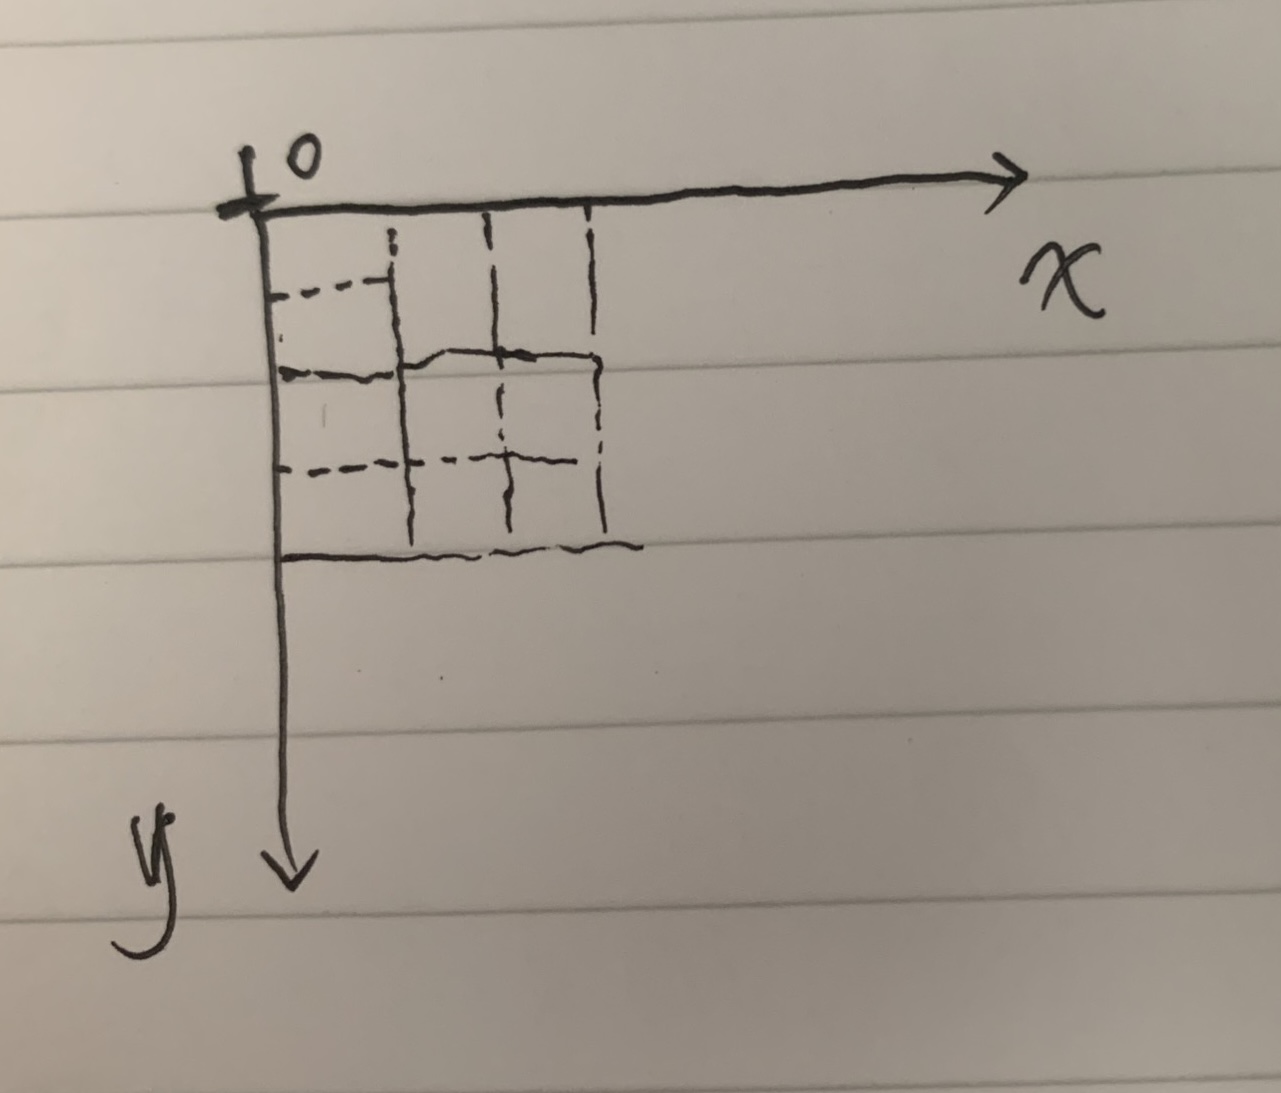 0
x
y